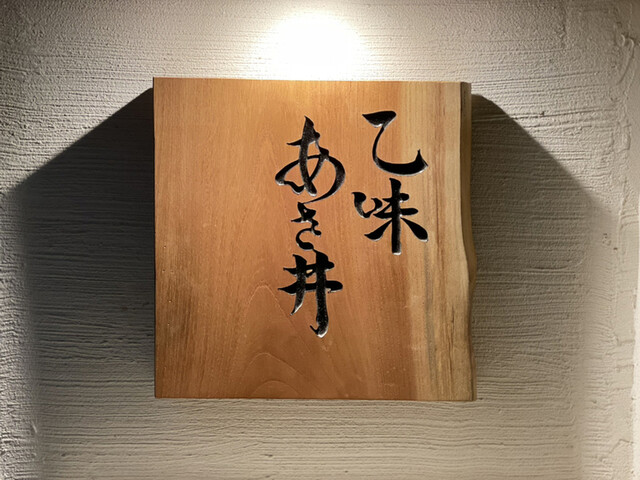 乙味
あさ井